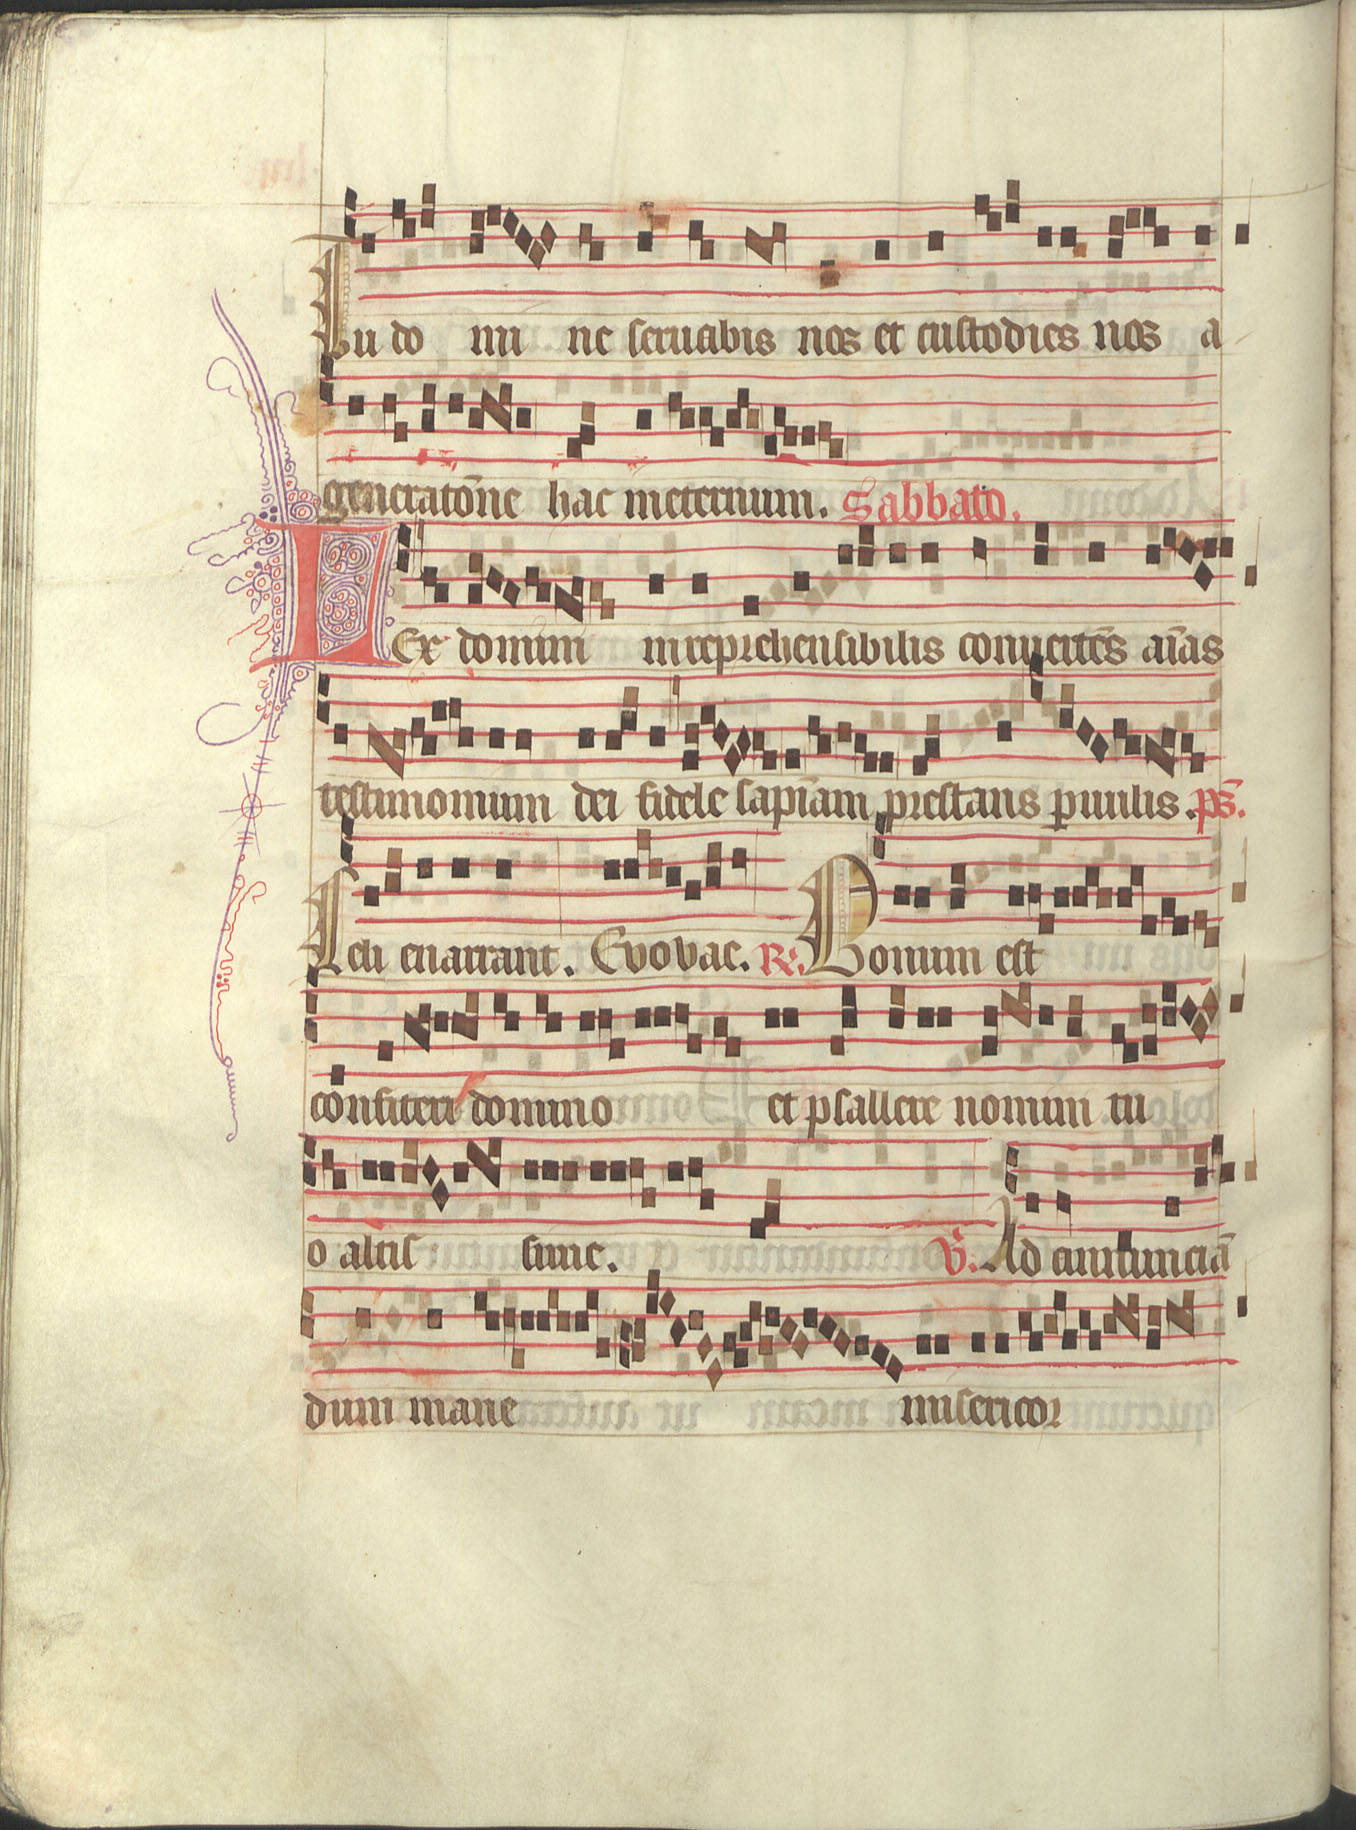 Tu do mi ne seruabis nos et custodies nos a
generatōne hac ineternum. Sabbato.
LEx domini inreprehensibilis conuertēs aīas
testimonium dei fidele sapīam prestans puulis .ps̄.
Celi enarrant. Evovae. R̷. Bonum est
confiteri domino et psallere nomini tu
o altis sime. V̄. Ad annunciā
dum mane misericor